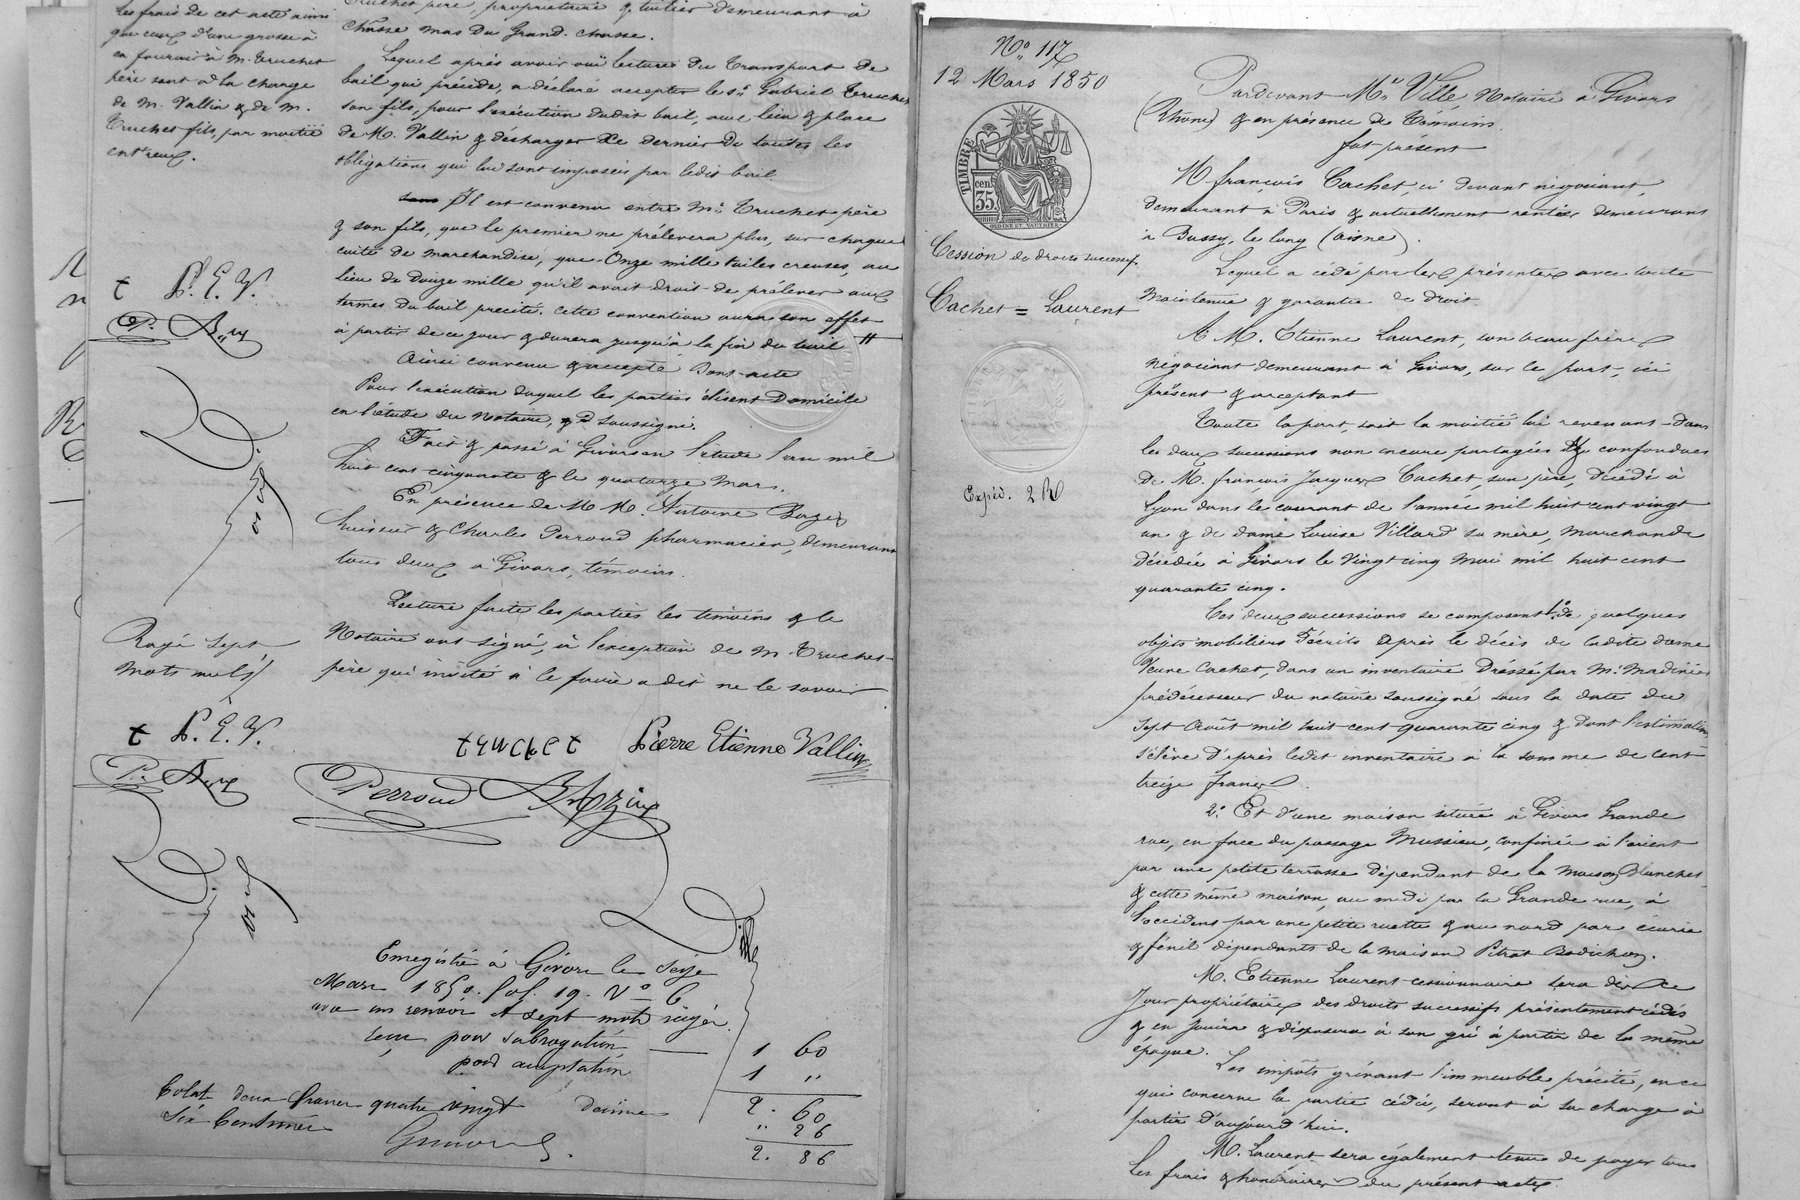 les frais de cet acte ainsi
que ceux d'une grosse à
en fournir à M. Truchet
père sont à la charge
de M. Vallin & de M.
Truchet fils, par moitié
entr'eux.
Truchet père, propriétaire & tuilier demeurant à
Chasse mas du Grand-chasse.
Lequel après avoir ouï lecture du transport de
bail qui précède, a déclaré accepter le sr. Gabriel Truchet
son fils, pour l'exécution dudit bail, au lieu & place
de M. Vallin & décharger ce dernier de toutes les
obligations qui lui sont imposées par ledit bail.
Il est convenu entre Mr. Truchet père
& son fils, que le premier ne prélevera plus, sur chaque
cuite de marchandise, que Onze mille tuiles creuses, au
lieu de Douze mille qu'il avait droit de prélever aux
termes du bail précité. Cette convention aura son effet
à partir de ce jour & durera jusqu'à la fin du bail
Ainsi convenu & accepté Dont-acte
Pour l'exécution duquel les parties élisent Domicile
en l'étude du Notaire, soussigné.
Fait & passé à Givors en l'étude l'an mil
huit cent cinquante & le quatorze Mars.
En présence de M M. Antoine Bazin
huissier & Charles Perroud pharmacien, demeurant
tous deux à Givors, témoins.
Lecture faite les parties les témoins & le
Notaire ont signé, à l'exception de M. Truchet
père qui invité à le faire a dit ne le savoir
t P. E. V.
Rayé sept
mots nuls
t P. E. V.
truchet Pierre Etienne Vallin
Perroud Bazin
Ville
Enregistré à Givors le seize
Mars 1850. fol. 19. Vo 6
avec un renvoi et sept mots rayés.
reçu pour subrogation 1 60
pour acceptation 1 "
2. 60
" 26
2. 86
Total deux francs quatre vingt
six centimes
No. 117
12 Mars 1850
TIMBRE
cen. 35.
Cession de droits successifs
Cachet = Laurent
Expéd. 2 R
Pardevant Me. Ville, Notaire à Givors
(Rhône) & en présence de témoins.
fut présent
M. françois Cachet, ci devant négociant,
demeurant à Paris & actuellement rentier demeurant
à Bussy, le long (aisne).
Lequel a cédé par les présentes avec toute
Maintenue & garantie de droit.
A M. Etienne Laurent, son beau frère
négociant demeurant à Givors, sur le port, ici
présent & acceptant
Toute la part, soit la moitié lui revenant dans
les deux successions non encore partagées & confondues
de M. françois Jacques Cachet, son père, décédé à
Lyon dans le courant de l'année mil huit cent vingt
un & de dame Louise Villard sa mère, Marchande
décédée à Givors le Vingt cinq Mai mil huit cent
quarante cinq.
Ces deux successions se composent 1o. de quelques
objets mobiliers décrits après le décès de ladite dame
Veuve Cachet, dans un inventaire dressé par Me. Madinier
prédécesseur du notaire soussigné sous la date du
sept Août mil huit cent quarante cinq & dont l'estimation
s'élève d'après ledit inventaire à la somme de Cent
treize francs.
2o. Et d'une maison située à Givors Grande
rue, en face du passage Mussieu, confinée à l'orient
par une petite terrasse dépendant de la Maison Blanchet
& cette même maison, au midi par la Grande rue, à
l'occident par une petite ruette & au nord par écurie
& fénil dépendants de la maison Pitrat Bodichon.
M. Etienne Laurent cessionnaire sera dès ce
Jour propriétaire des droits successifs présentement cédés
& en jouira & disposera à son gré à partir de la même
époque. Les impôts grévant l'immeuble précité, en ce
qui concerne la partie cédée, seront à sa charge à
partir d'aujourd'hui.
M. Laurent sera également tenu de payer tous
les frais & honoraires du présent acte.